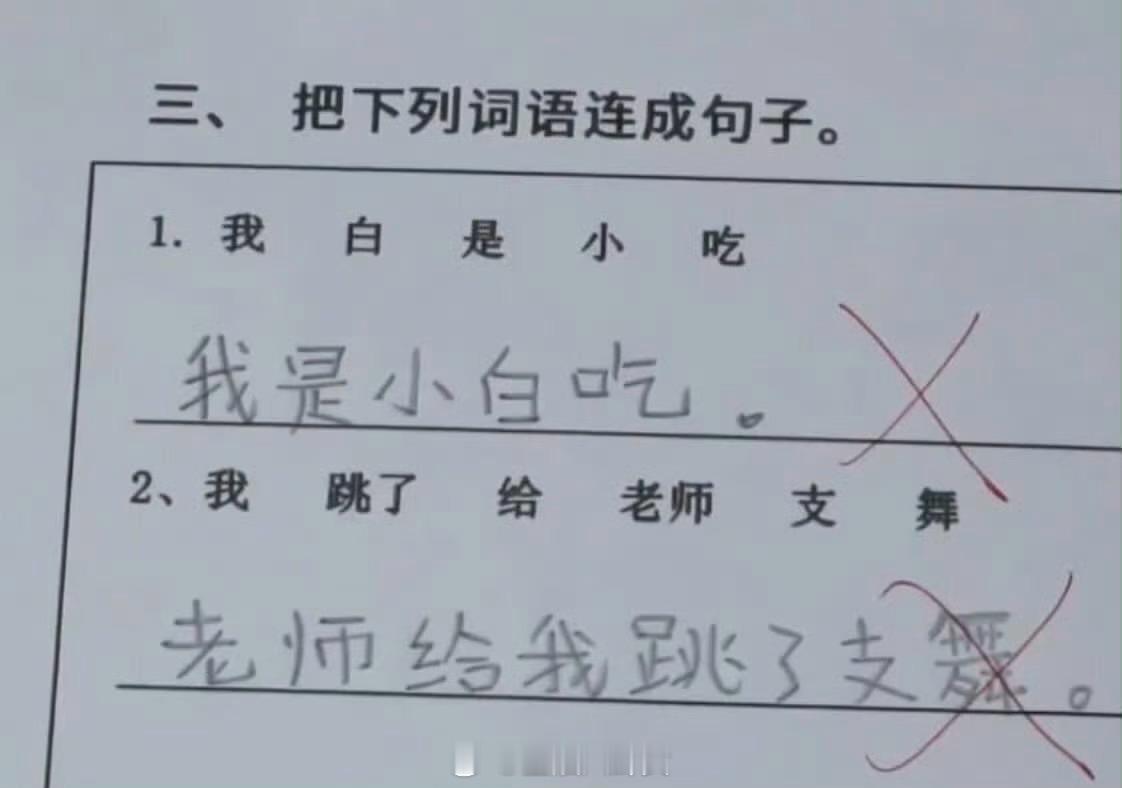 三、 把下列词语连成句子。
1. 我 白 是 小 吃
我是小白吃。
2、我 跳了 给 老师 支 舞
老师给我跳了支舞。